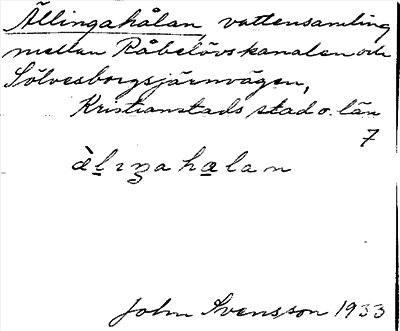 Ällingahålan, vattensamling
mellan Råbelövskanalen och
Sölvesborgsjärnvägen,
Kristianstads stad o. län
7
àl̲ıŋahalan
John Svensson 1933